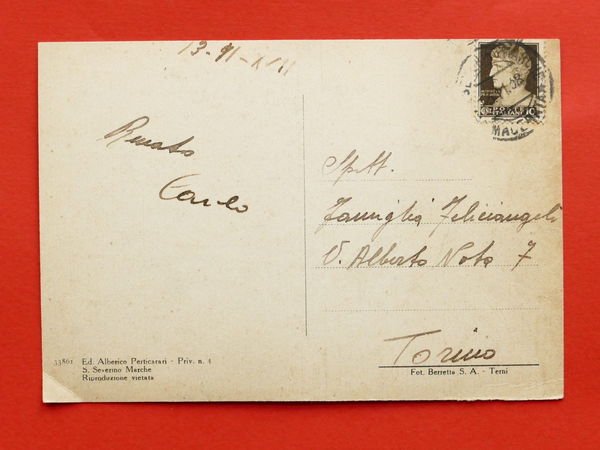 13-
Renato
Carlo
Spett.
Famiglia Feliciangeli
V. Alberto Nota 7
Torino
33861 Ed. Alberico Perticarari - Priv. n. 4
S. Severino Marche
Riproduzione vietata
Fot. Berretta S. A. - Terni